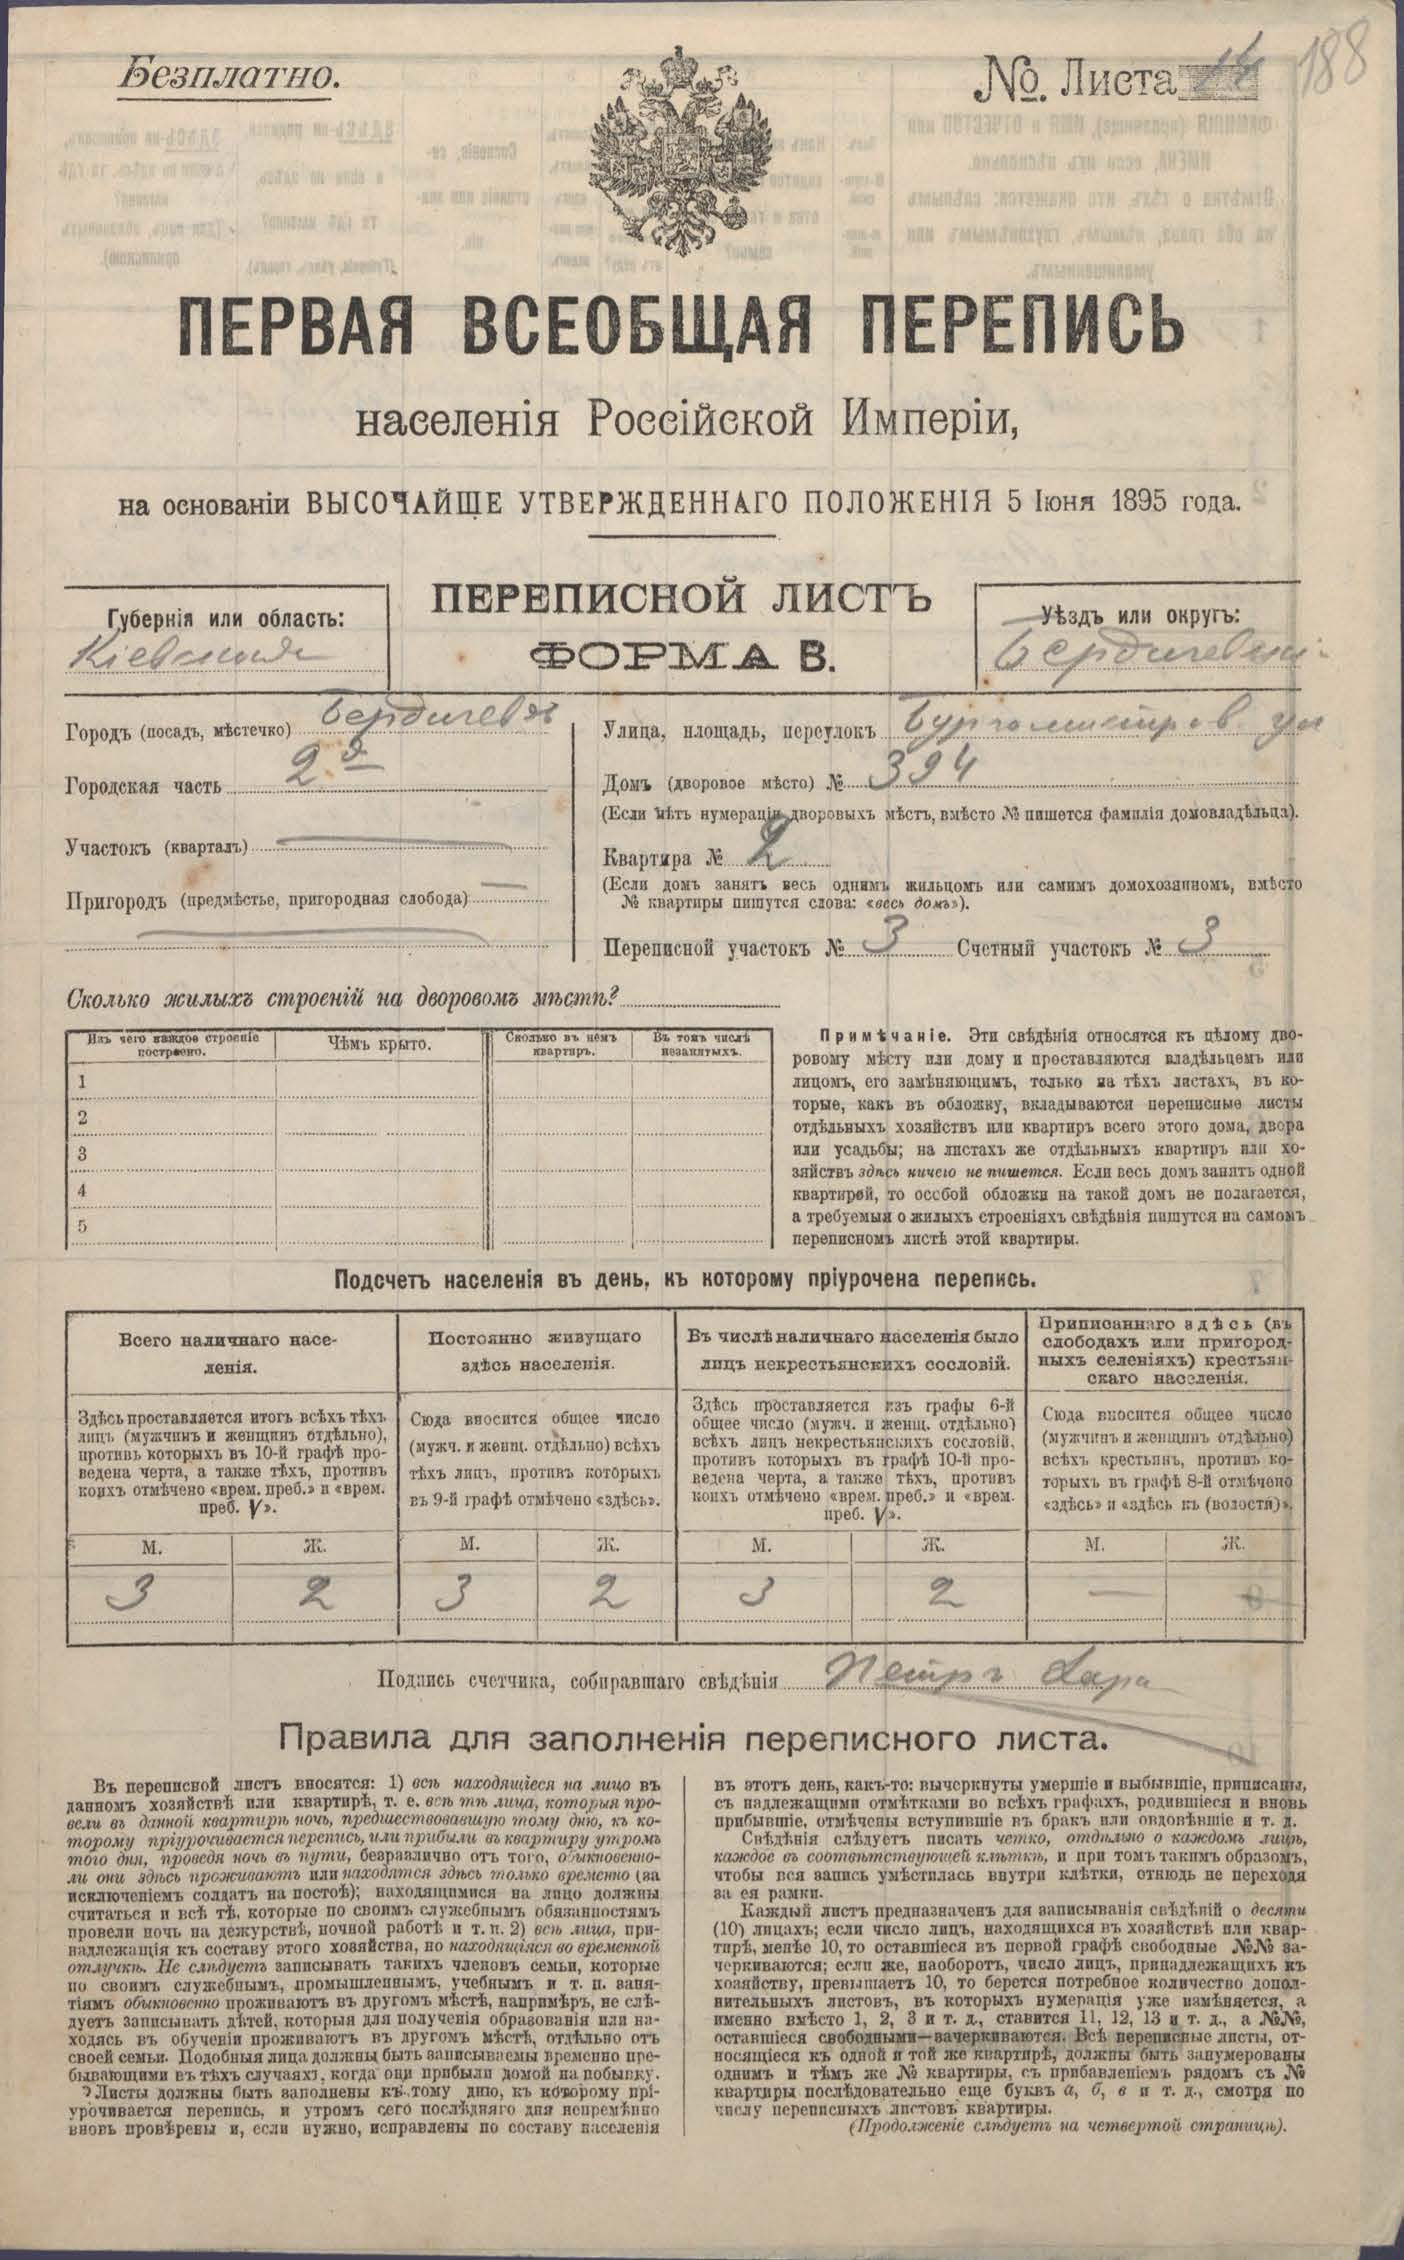 Безплатно.
№. Листа 14 188
ПЕРВАЯ ВСЕОБЩАЯ ПЕРЕПИСЬ
населенія Россійской Имперіи,
на основаніи ВЫСОЧАЙШЕ УТВЕРЖДЕННАГО ПОЛОЖЕНІЯ 5 Іюня 1895 года.
ПЕРЕПИСНОЙ ЛИСТЪ
ФОРМА В.
Губернія или область:
Кіевская
Уѣздъ или округъ:
Бердичевскі
Городъ (посадъ, мѣстечко) Бердичевъ
Городская часть 2я
Участокъ (кварталъ)
Пригородъ (предмѣстье, пригородная слобода)
Улица, площадь, переулокъ Бургомистров. ул
Домъ (дворовое мѣсто) № 394
(Если нѣтъ нумераціи дворовыхъ мѣстъ, вмѣсто № пишется фамилія домовладѣльца).
Квартира № 2
(Если домъ занятъ весь однимъ жильцомъ или самимъ домохозяиномъ, вмѣсто
№ квартиры пишутся слова: «весь домъ»).
Переписной участокъ № 3 Счетный участокъ № 3
Сколько жилыхъ строеній на дворовомъ мѣстѣ?
Изъ чего каждое строеніе
построено.
Чѣмъ крыто.
Сколько въ немъ
квартиръ.
Въ томъ числѣ
незанятыхъ.
1
2
3
4
5
Примѣчаніе. Эти свѣдѣнія относятся къ цѣлому дво-
ровому мѣсту или дому и проставляются владѣльцемъ или
лицомъ, его замѣняющимъ, только на тѣхъ листахъ, въ ко-
торые, какъ въ обложку, вкладываются переписные листы
отдѣльныхъ хозяйствъ или квартиръ всего этого дома, двора
или усадьбы; на листахъ же отдѣльныхъ квартиръ или хо-
зяйствъ здѣсь ничего не пишется. Если весь домъ занятъ одной
квартирой, то особой обложки на такой домъ не полагается,
а требуемыя о жилыхъ строеніяхъ свѣдѣнія пишутся на самомъ
переписномъ листѣ этой квартиры.
Подсчетъ населенія въ день, къ которому пріурочена перепись.
Всего наличнаго насе-
ленія.
Здѣсь проставляется итогъ всѣхъ тѣхъ
лицъ (мужчинъ и женщинъ отдѣльно),
противъ которыхъ въ 10-й графѣ про-
ведена черта, а также тѣхъ, противъ
коихъ отмѣчено «врем. преб.» и «врем.
преб. V».
Постоянно живущаго
здѣсь населенія.
Сюда вносится общее число
(мужч. и женщ. отдѣльно) всѣхъ
тѣхъ лицъ, противъ которыхъ
въ 9-й графѣ отмѣчено «здѣсь».
Въ числѣ наличнаго населенія было
лицъ некрестьянскихъ сословій.
Здѣсь проставляется изъ графы 6-й
общее число (мужч. и женщ. отдѣльно)
всѣхъ лицъ некрестьянскихъ сословій,
противъ которыхъ въ графѣ 10-й про-
ведена черта, а также тѣхъ, противъ
коихъ отмѣчено «врем. преб.» и «врем.
преб. V».
Приписаннаго здѣсь (въ
слободахъ или пригород-
ныхъ селеніяхъ) крестьян-
скаго населенія.
Сюда вносится общее число
(мужчинъ и женщинъ отдѣльно)
всѣхъ крестьянъ, противъ ко-
торыхъ въ графѣ 8-й отмѣчено
«здѣсь» и «здѣсь къ (волости)».
М. Ж. М. Ж. М. Ж. М. Ж.
3 2 3 2 3 2 — —
Подпись счетчика, собиравшаго свѣдѣнія Петръ
Правила для заполненія переписного листа.
Въ переписной листъ вносятся: 1) всѣ находящіеся на лицо въ
данномъ хозяйствѣ или квартирѣ, т. е. всѣ тѣ лица, которыя про-
вели въ данной квартирѣ ночь, предшествовавшую тому дню, къ ко-
торому пріурочивается перепись, или прибыли въ квартиру утромъ
того дня, проведя ночь въ пути, безразлично отъ того, обыкновенно-
ли они здѣсь проживаютъ или находятся здѣсь только временно (за
исключеніемъ солдатъ на постоѣ); находящимися на лицо должны
считаться и всѣ тѣ, которые по своимъ служебнымъ обязанностямъ
провели ночь на дежурствѣ, ночной работѣ и т. п. 2) всѣ лица, при-
надлежащія къ составу этого хозяйства, но находящіяся во временной
отлучкѣ. Не слѣдуетъ записывать такихъ членовъ семьи, которые
по своимъ служебнымъ, промышленнымъ, учебнымъ и т. п. заня-
тіямъ обыкновенно проживаютъ въ другомъ мѣстѣ, напримѣръ, не слѣ-
дуетъ записывать дѣтей, которыя для полученія образованія или на-
ходясь въ обученіи проживаютъ въ другомъ мѣстѣ, отдѣльно отъ
своей семьи. Подобныя лица должны быть записываемы временно пре-
бывающими въ тѣхъ случаяхъ, когда они прибыли домой на побывку.
Листы должны быть заполнены къ тому дню, къ которому прі-
урочивается перепись, и утромъ сего послѣдняго дня непремѣнно
вновь провѣрены и, если нужно, исправлены по составу населенія
въ этотъ день, какъ-то: вычеркнуты умершіе и выбывшіе, приписаны,
съ надлежащими отмѣтками во всѣхъ графахъ, родившіеся и вновь
прибывшіе, отмѣчены вступившіе въ бракъ или овдовѣвшіе и т. д.
Свѣдѣнія слѣдуетъ писать четко, отдѣльно о каждомъ лицѣ,
каждое въ соотвѣтствующей клѣткѣ, и при томъ такимъ образомъ,
чтобы вся запись умѣстилась внутри клѣтки, отнюдь не переходя
за ея рамки.
Каждый листъ предназначенъ для записыванія свѣдѣній о десяти
(10) лицахъ; если число лицъ, находящихся въ хозяйствѣ или квар-
тирѣ, менѣе 10, то оставшіеся въ первой графѣ свободные №№ за-
черкиваются; если же, наоборотъ, число лицъ, принадлежащихъ къ
хозяйству, превышаетъ 10, то берется потребное количество допол-
нительныхъ листовъ, въ которыхъ нумерація уже измѣняется, а
именно вмѣсто 1, 2, 3 и т. д., ставится 11, 12, 13 и т. д., а №№,
оставшіеся свободными—зачеркиваются. Всѣ переписные листы, от-
носящіеся къ одной и той же квартирѣ, должны быть занумерованы
однимъ и тѣмъ же № квартиры, съ прибавленіемъ рядомъ съ №
квартиры послѣдовательно еще буквъ а, б, в и т. д., смотря по
числу переписныхъ листовъ квартиры.
(Продолженіе слѣдуетъ на четвертой страницѣ).